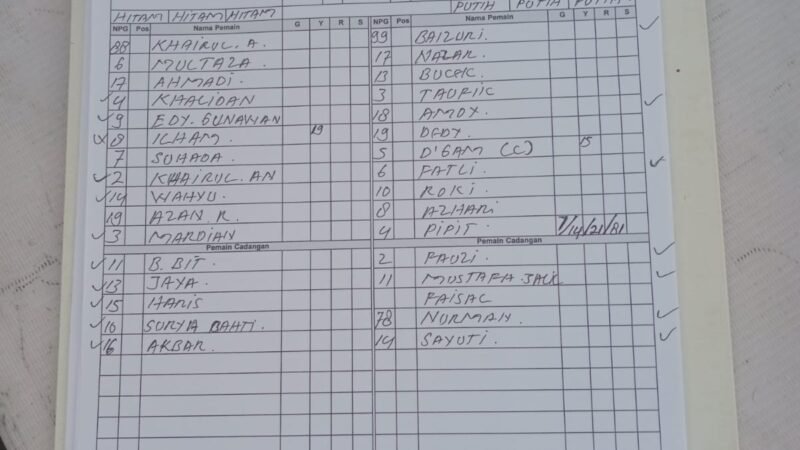 HITAM HITAM HITAM PUTIH PUTIH PUTIH
NPG Pos Nama Pemain G Y R S NPG Pos Nama Pemain G Y R S
88 KHAIRUL. A. 99 BAIZURI.
6 MULTAZA 17 NAZAR.
17 AHMADI. 13 BUCEK.
4 KHALIDAN 3 TAUFIK
9 EDY. GUNAWAN 18 AMOY.
8 ILHAM. 19 19 DEDY
7 SUHADA. 5 D'GAM (C) 15
2 KHAIRUL. AN 6 FATLI.
14 WAHYU. 10 ROKI.
19 AZAN. R. 8 AZHARI
3 MARDIAN 4 PIPIT 7/14/21/81
Pemain Cadangan Pemain Cadangan
11 B. BIT. 2 FAUZI.
13 JAYA. 11 MUSTAFA JALK
15 HARIS FAISAL
10 SURYA BAHTI. 78 NORMAN.
16 AKBAR. 14 SAYUTI.